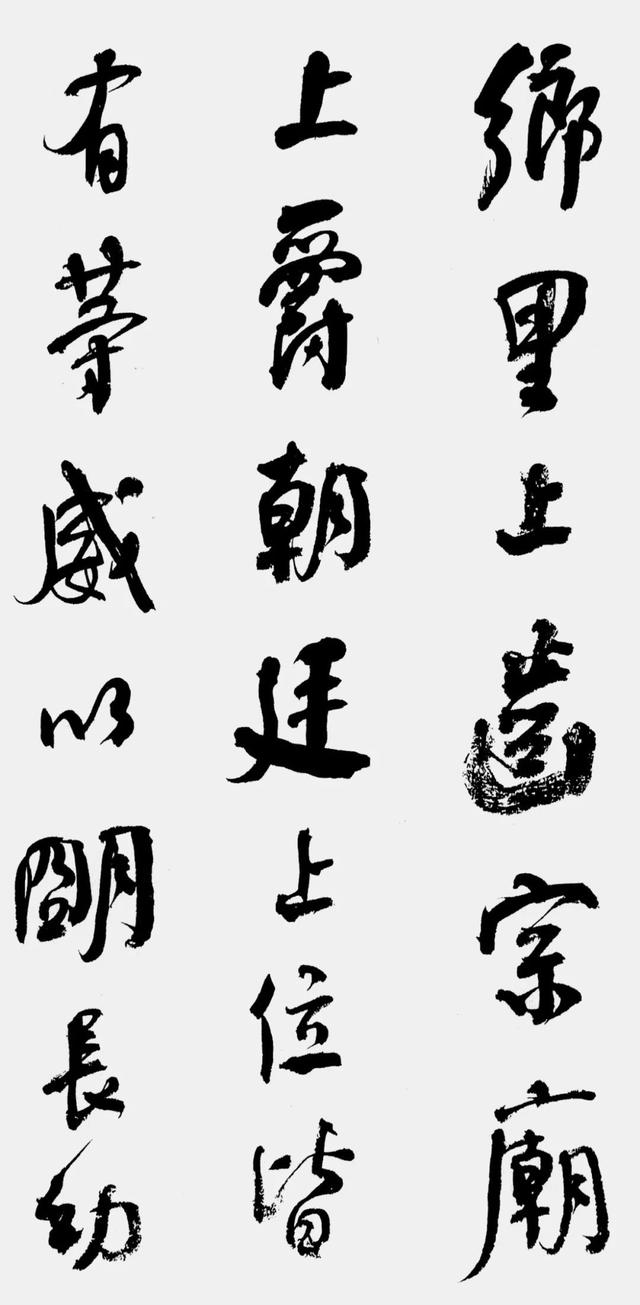 鄉里上齒宗廟
上爵朝廷上位皆
有等威以明長幼